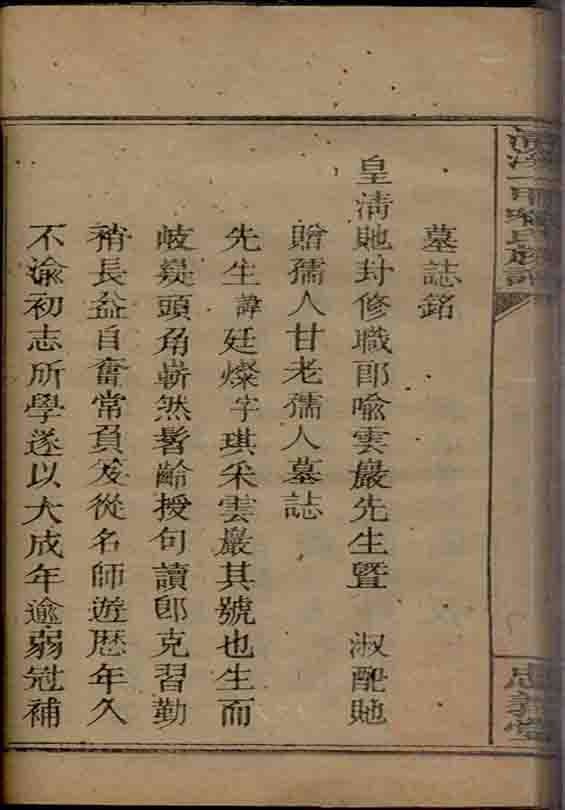 墓誌銘
皇清貤封修職郎喻雲巖先生暨 淑配貤
贈孺人甘老孺人墓誌
先生諱廷燦字琪采雲巖其號也生而
岐嶷頭角嶄然髫齡授句讀即克習勤
稍長益自奮常負笈從名師遊歷年久
不渝初志所學遂以大成年逾弱冠補